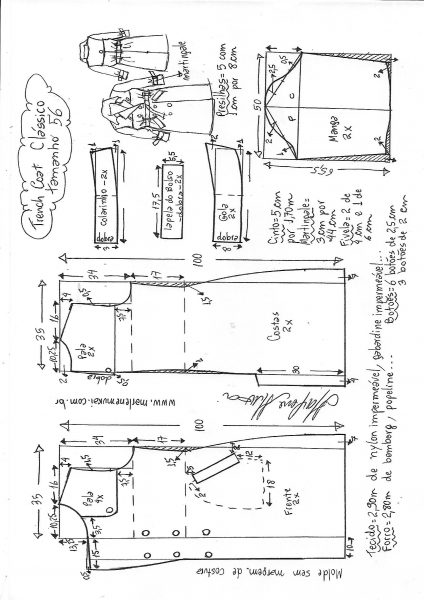 Trench Coat Clássico
Tamanho 56
martingale
Presilhas = 5 cm
1 cm por
8 cm
colarinho - 2x
dobra
3
17,5
5,5
lapela do bolso
dobra - 2x
Gola
2x
dobra
8
50
2,5
Manga
2x
P
C
2
2
Cinto = 5 cm
por 1,70m
Martingale =
3 cm por
44 cm
Fivela = 2 de
4 cm e 1 de
6 cm
100
34
17
35
16
Pala
2x
dobra
1,5
Costas
2x
30
www.marlenemukai.com.br
Marlene Mukai
100
34
17
35
16
Pala
4x
3,5
1,5
12
18
Frente
2x
15
10
Molde sem margem de costura
Tecido = 2,90m de nylon impermeável, gabardine impermeável...
Forro = 2,80m de bemberg, popeline...
Botões = 6 botões de 2,5 cm
3 botões de 2 cm